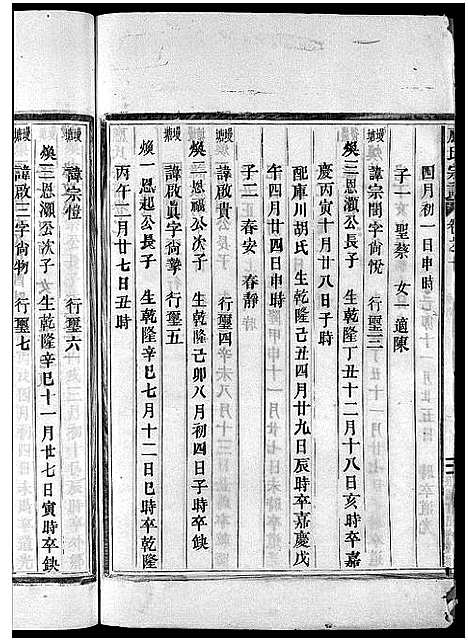 四月初一日申時
子一 聖蔡 女一適陳
諱宗誾字尙悅 行璽三
煥三恩灝公次子 生乾隆丁丑十二月十八日亥時卒嘉
慶丙寅十月廿八日子時
配庫川胡氏 生乾隆己丑四月廿九日辰時卒嘉慶戊
午四月廿四日申時
子二 春安 春靜
諱啟貴 行璽四
煥三恩福公次子 生乾隆己卯八月初四日子時卒缺
諱啟眞字尙摯 行璽五
煥一恩起公長子 生乾隆辛巳七月十二日巳時卒乾隆
丙午二月廿七日丑時
諱宗愷 行璽六
煥三恩灝公次子 生乾隆辛巳十一月廿七日寅時卒缺
諱啟三字尙物 行璽七